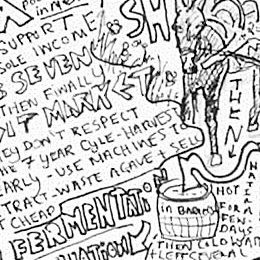 SUPPORT
SOLE INCOME
SEVEN
THEN FINALLY
MARK
SH
HEY DON'T RESPECT
THE 7 YEAR CYLE-HARVEST
EARLY. USE MACHINES TO
TRACT-WASTE AGAVE + SELL
CHEAP
FERMENTATIO
IN BARRELS
THEN
NOT
FOR A
FEW
DAYS
WATER
THEN COLD WAT
+ LEFT SEVERAL